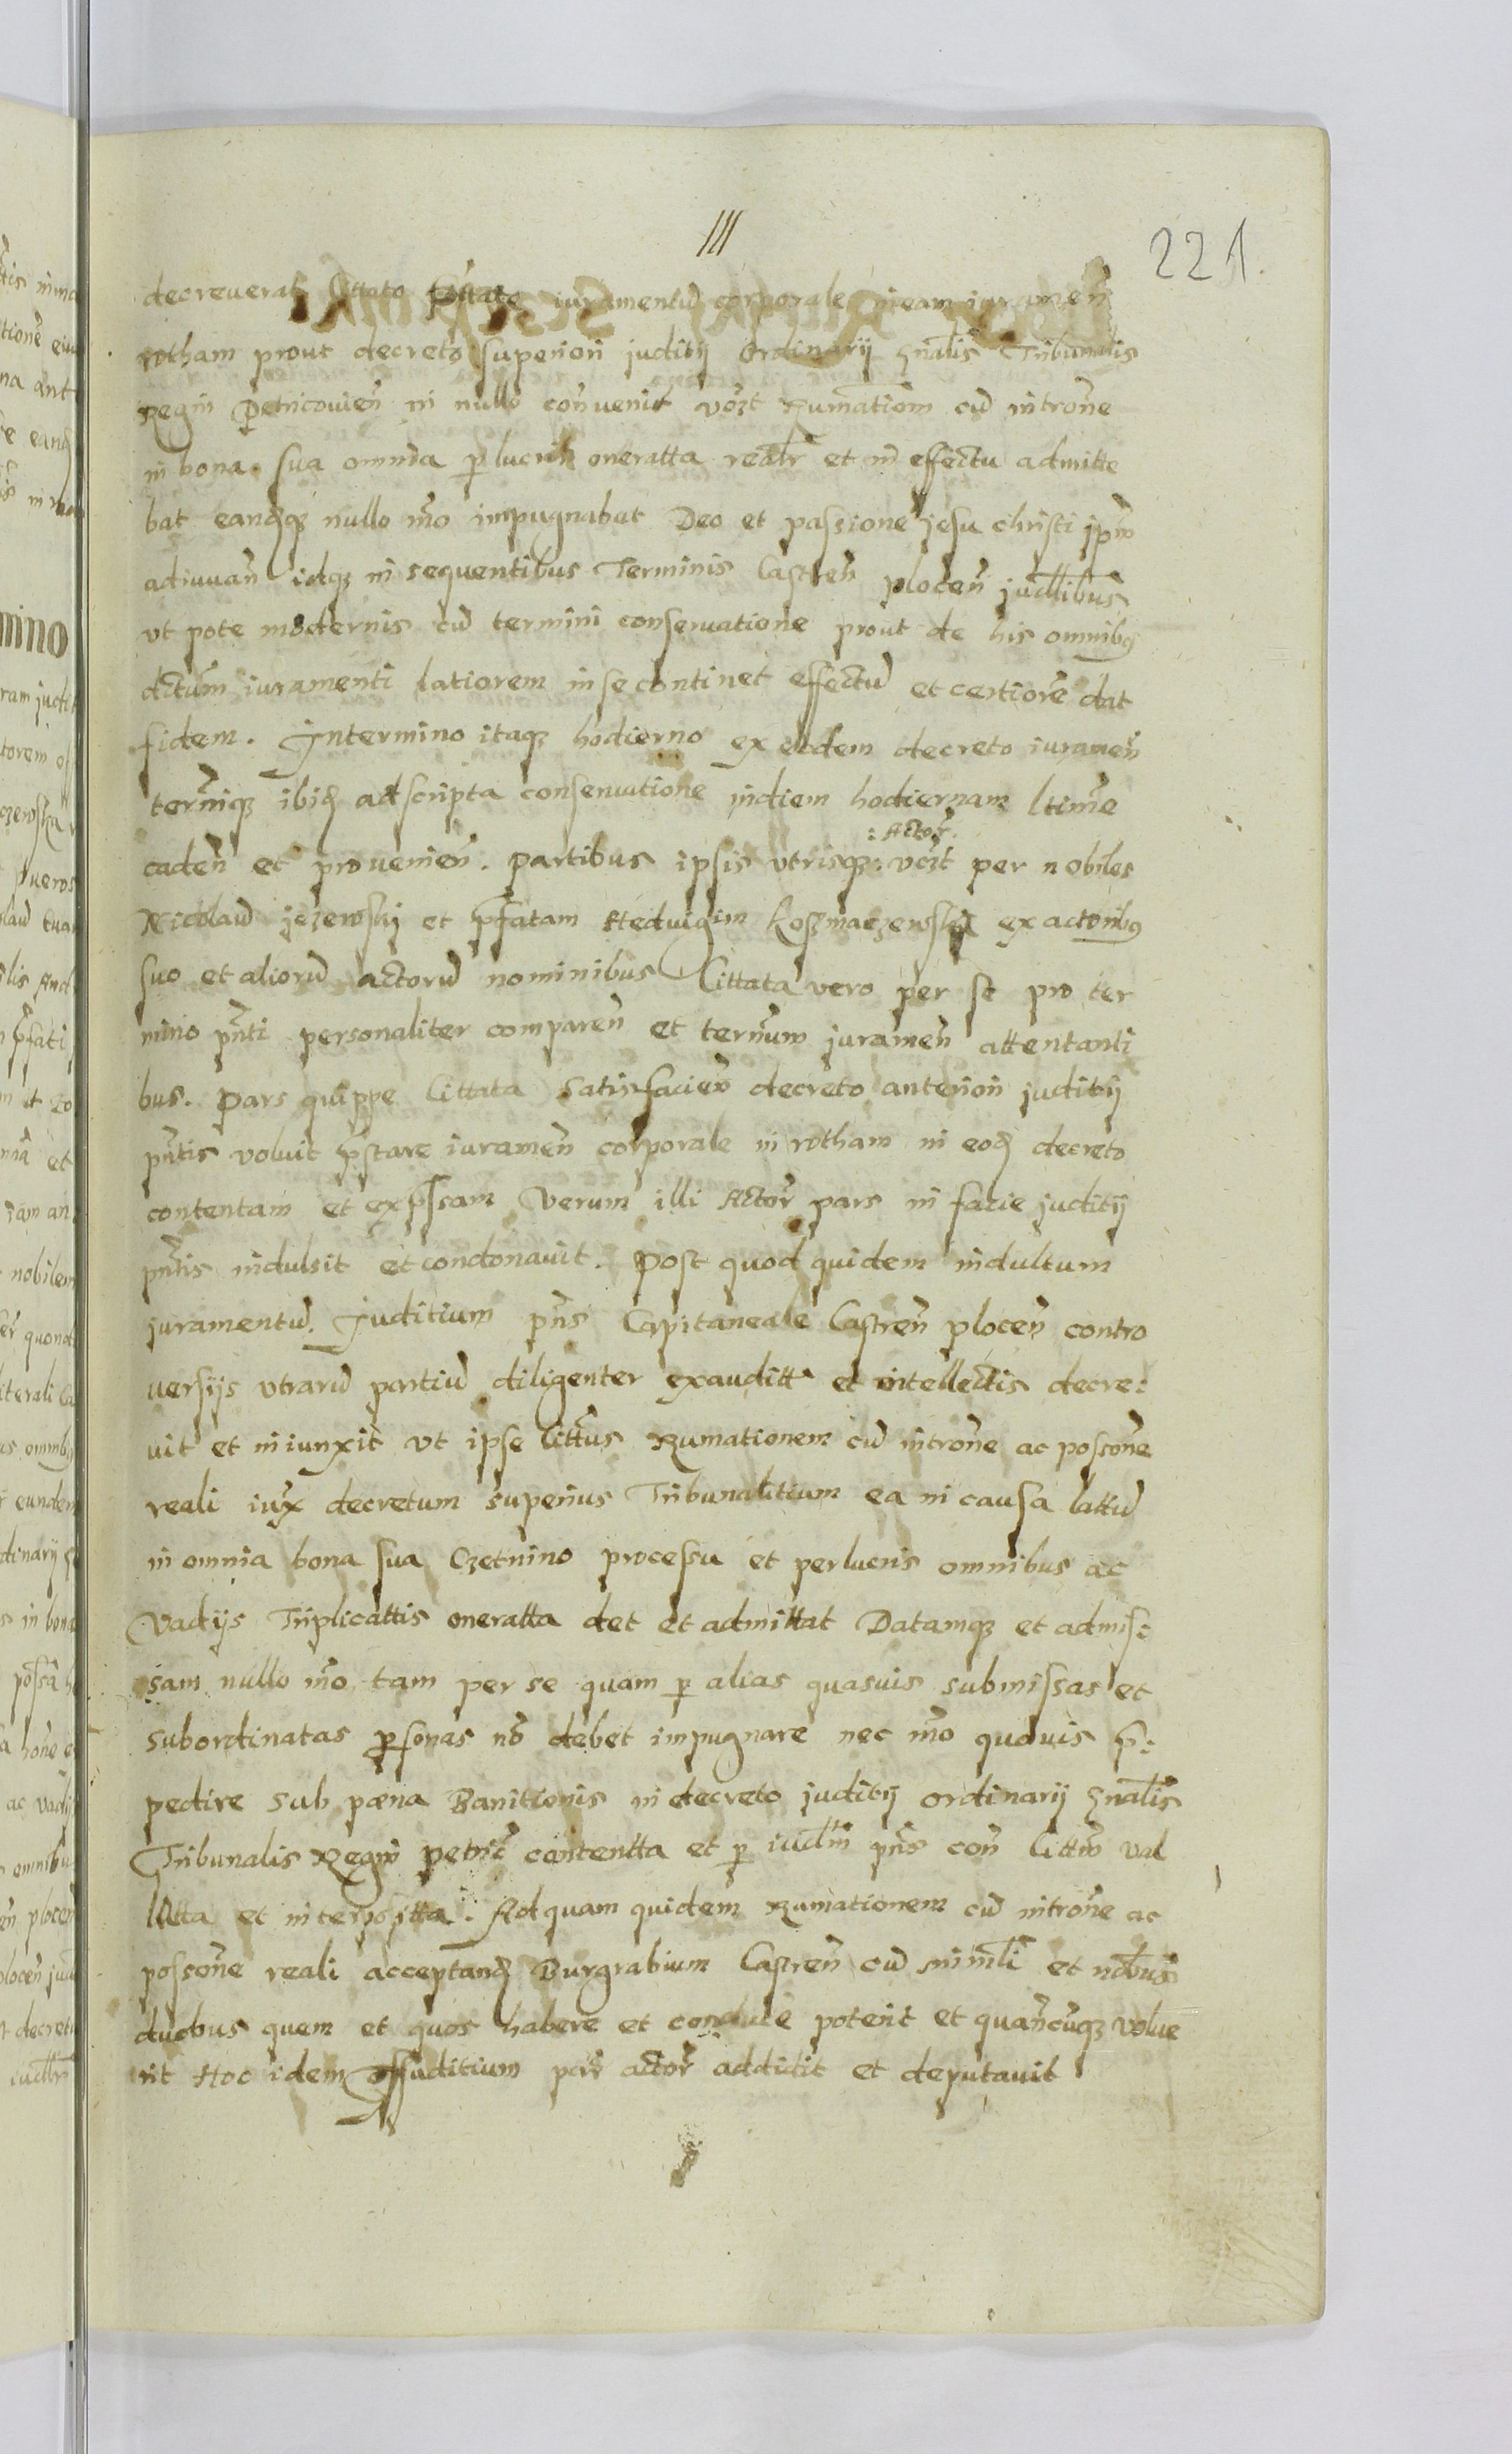 III
221.
decreverat Cittato pstare iuramentū corporale in eam iuramen̄
rotham prout decreto superiori juditij Ordinarij Gnalis Tribunalis
Regni Petricovien̄ in nullo convenit vort Rumationi cū introne
in bona sua omnia p lucris oneratta realr et in effectu admitte
bat eandqȝ nullo mo impugnabat Deo et passione jesu christi ipm
adiuvan̄ idqȝ in sequentibus Terminis Castren̄ plocen̄ judllibus
ut pote modernis cū termini conservatione prout de his omnibȝ
dctum iuramenti latiorem in se continet effectū et certiorē dat
fidem. In termino itaqȝ hodierno ex eodem decreto iuramen̄
termiqȝ ibid adscripta conservatione in diem hodiernam ltime
caden̄ et provenien̄. partibus ipsis utrisqȝ: vort per nobiles
: Actor.
Nicolaū jezewskj et pfatam Hedvigim Koszmaczewska ex actoribȝ
suo et aliorū actorū nominibus Cittata vero per se pro ter
mino pnti personaliter comparen̄ et ternum juramen̄ attentanti
bus. Pars quippe Cittata satisfacien̄ decreto anteriori juditij
pntis voluit pstare iuramen̄ corporale in rotham in eod decreto
contentam et expssam Verum illi Actor pars in facie juditij
pntis indulsit et condonavit. Post quod quidem indultum
juramentū. Juditium pns Capitaneale Castren̄ plocen̄ contro
versijs utrarū partiū diligenter exauditt et intellectis decre:
vit et iniunxit ut ipse Cittus Rumationem cū introne ac possone
reali iux decretum superius Tribunalitium ea in causa lattū
in omnia bona sua Czetnino processu et perlucris omnibus ac
Vadijs Triplicattis oneratta det et admittat Datamqȝ et admis:
sam nullo mo tam per se quam p alias quasvis submissas et
subordinatas psonas no debet impugnare nec mo quovis p:
pedire sub pæna Banitionis in decreto juditij ordinarij Gnalis
Tribunalis Regni petric contentta et p iudm pns con̄ Cittm val
latta et interpsitta. Ad quam quidem Rumationem cū introne ac
possone reali acceptand Burgrabium Castren̄ cū minli et nobbus
duobus quem et quos habere et conducē poterit et quancunqȝ volue
rit Hoc idem Juditium pār actor addidit et deputavit